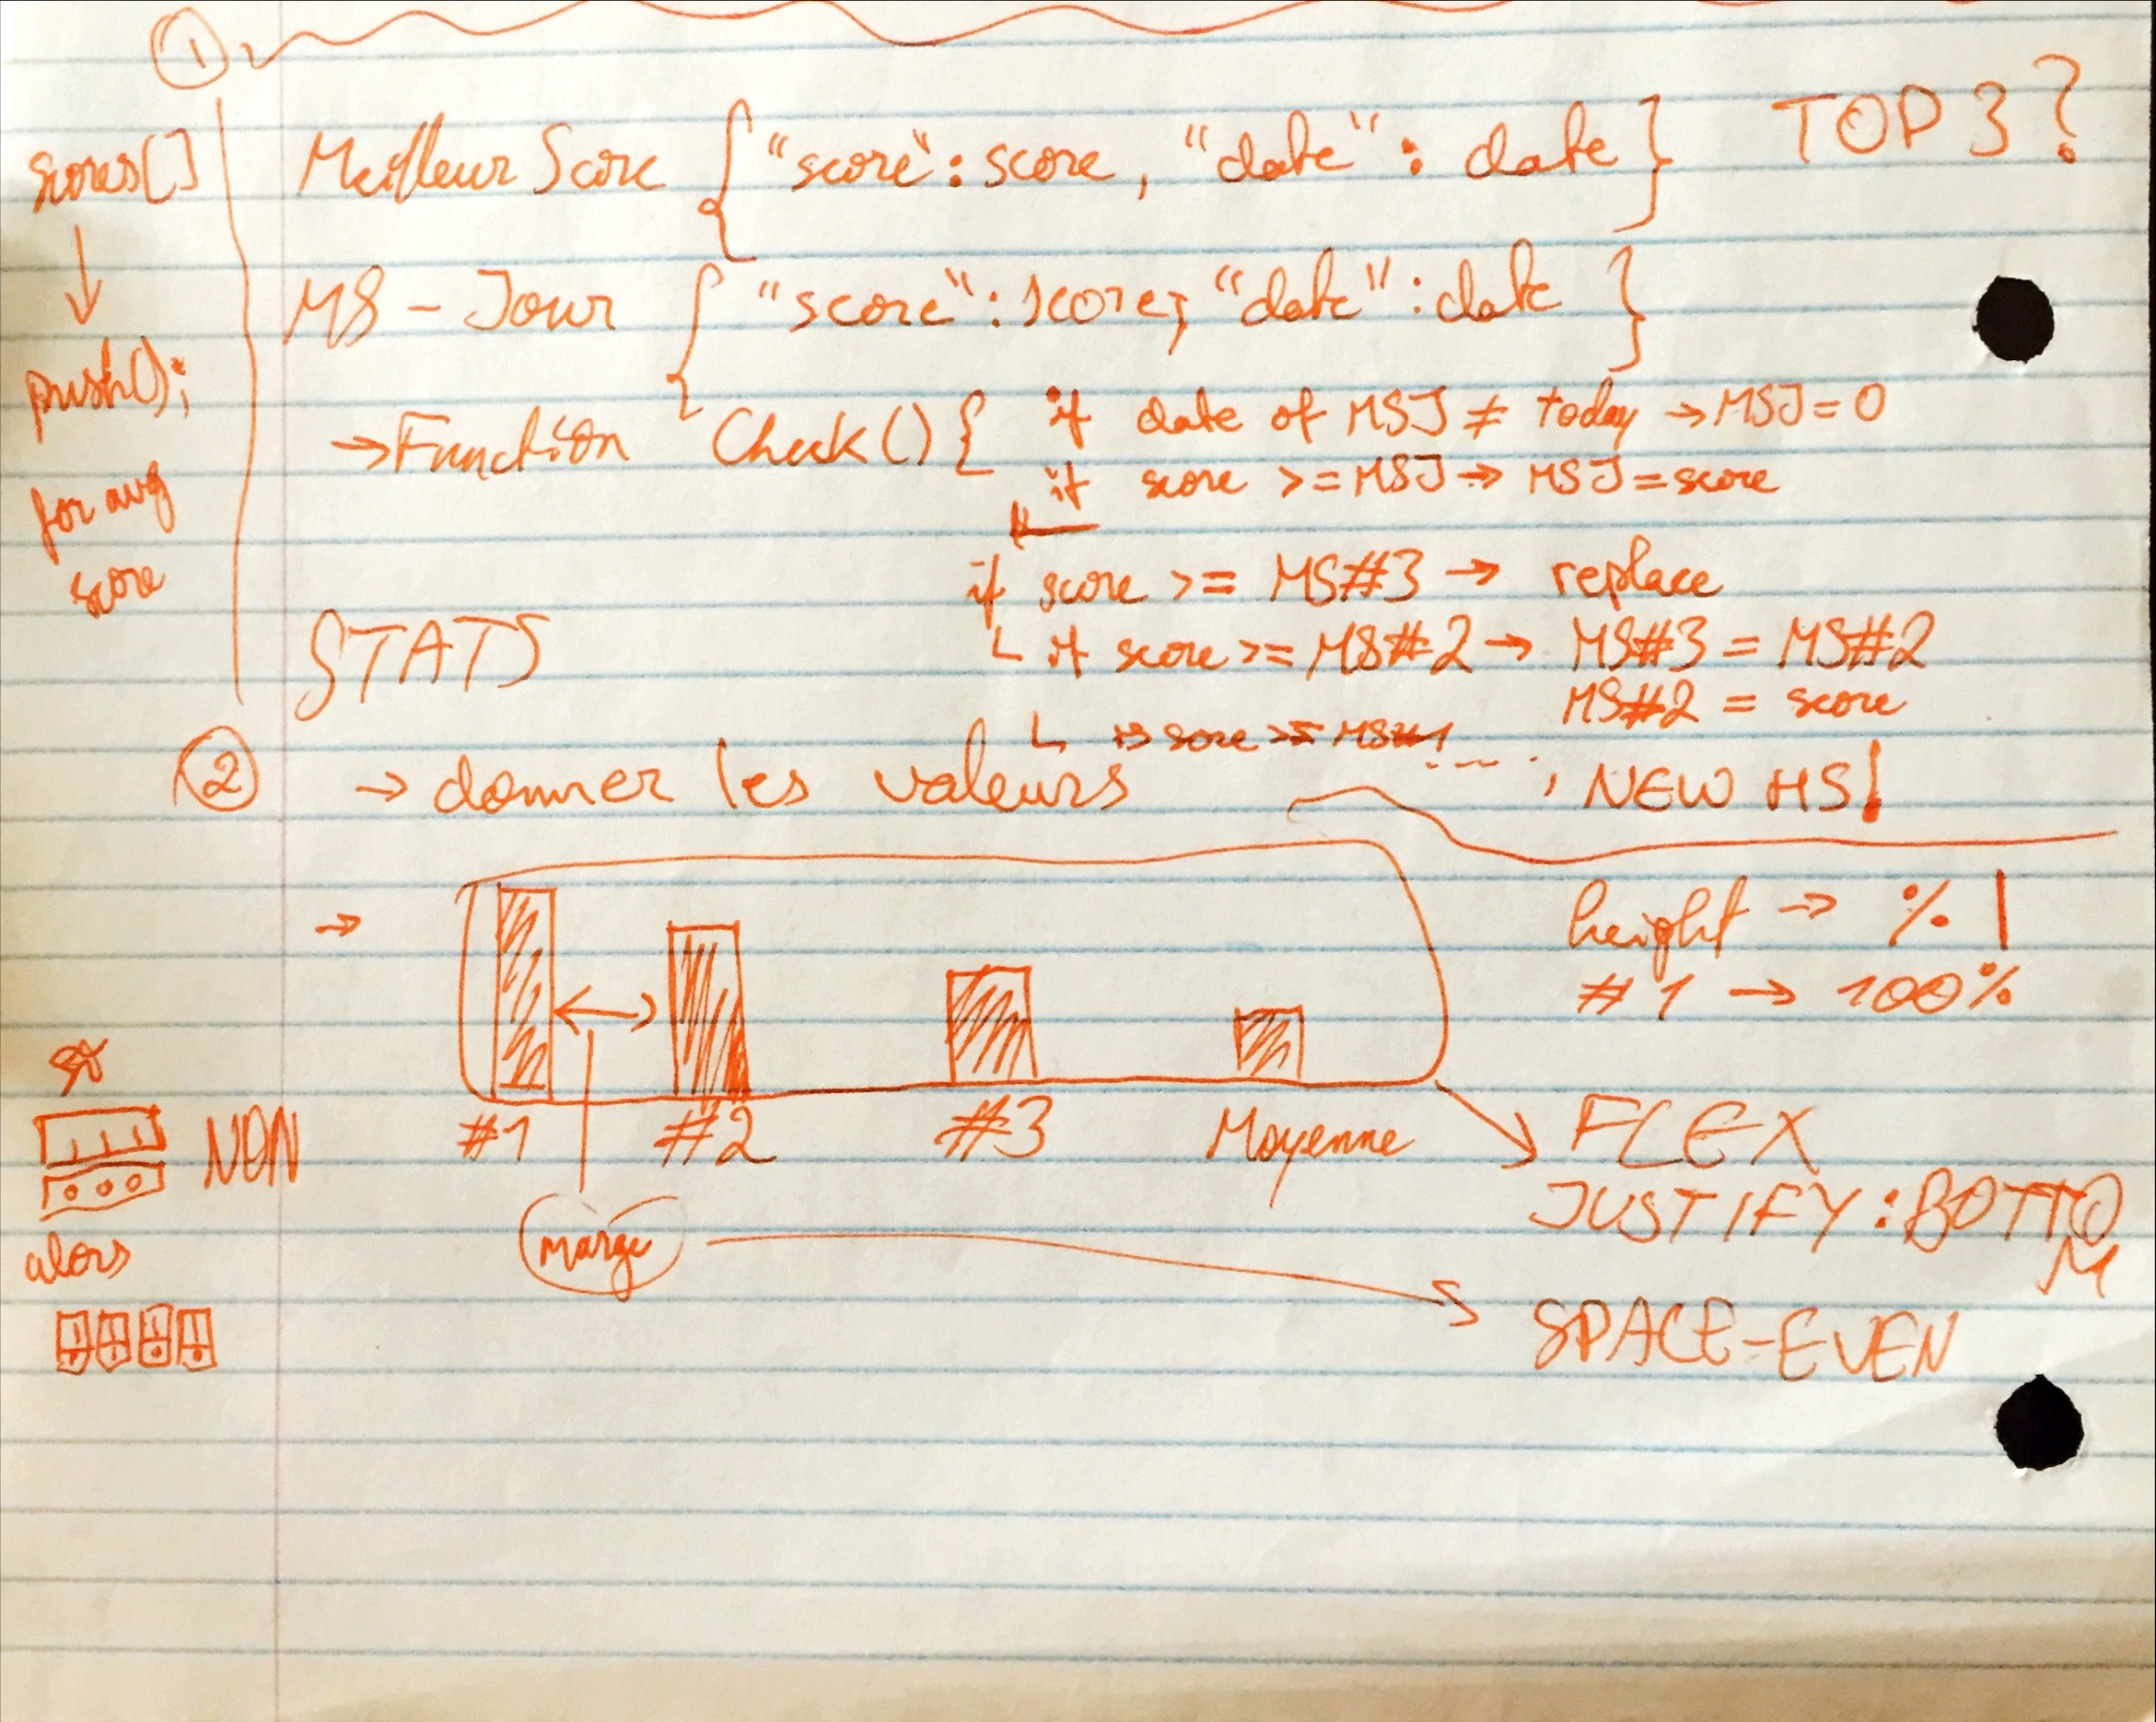 ①
scores[]
↓
push();
for avg
score
Meilleur Score { "score": score, "date": date } TOP 3?
MS - Jour { "score": score, "date": date }
→ Function Check() { if date of MSJ ≠ today → MSJ = 0
if score >= MSJ → MSJ = score
if score >= MS#3 → replace
└ if score >= MS#2 → MS#3 = MS#2
MS#2 = score
└ score >= MS#1 ----- , NEW HS!
STATS
② → donner les valeurs
→
height → % !
#1 → 100%
#1 #2 #3 Moyenne
marge
FLEX
JUSTIFY: BOTTOM
SPACE-EVEN
si
NON
alors